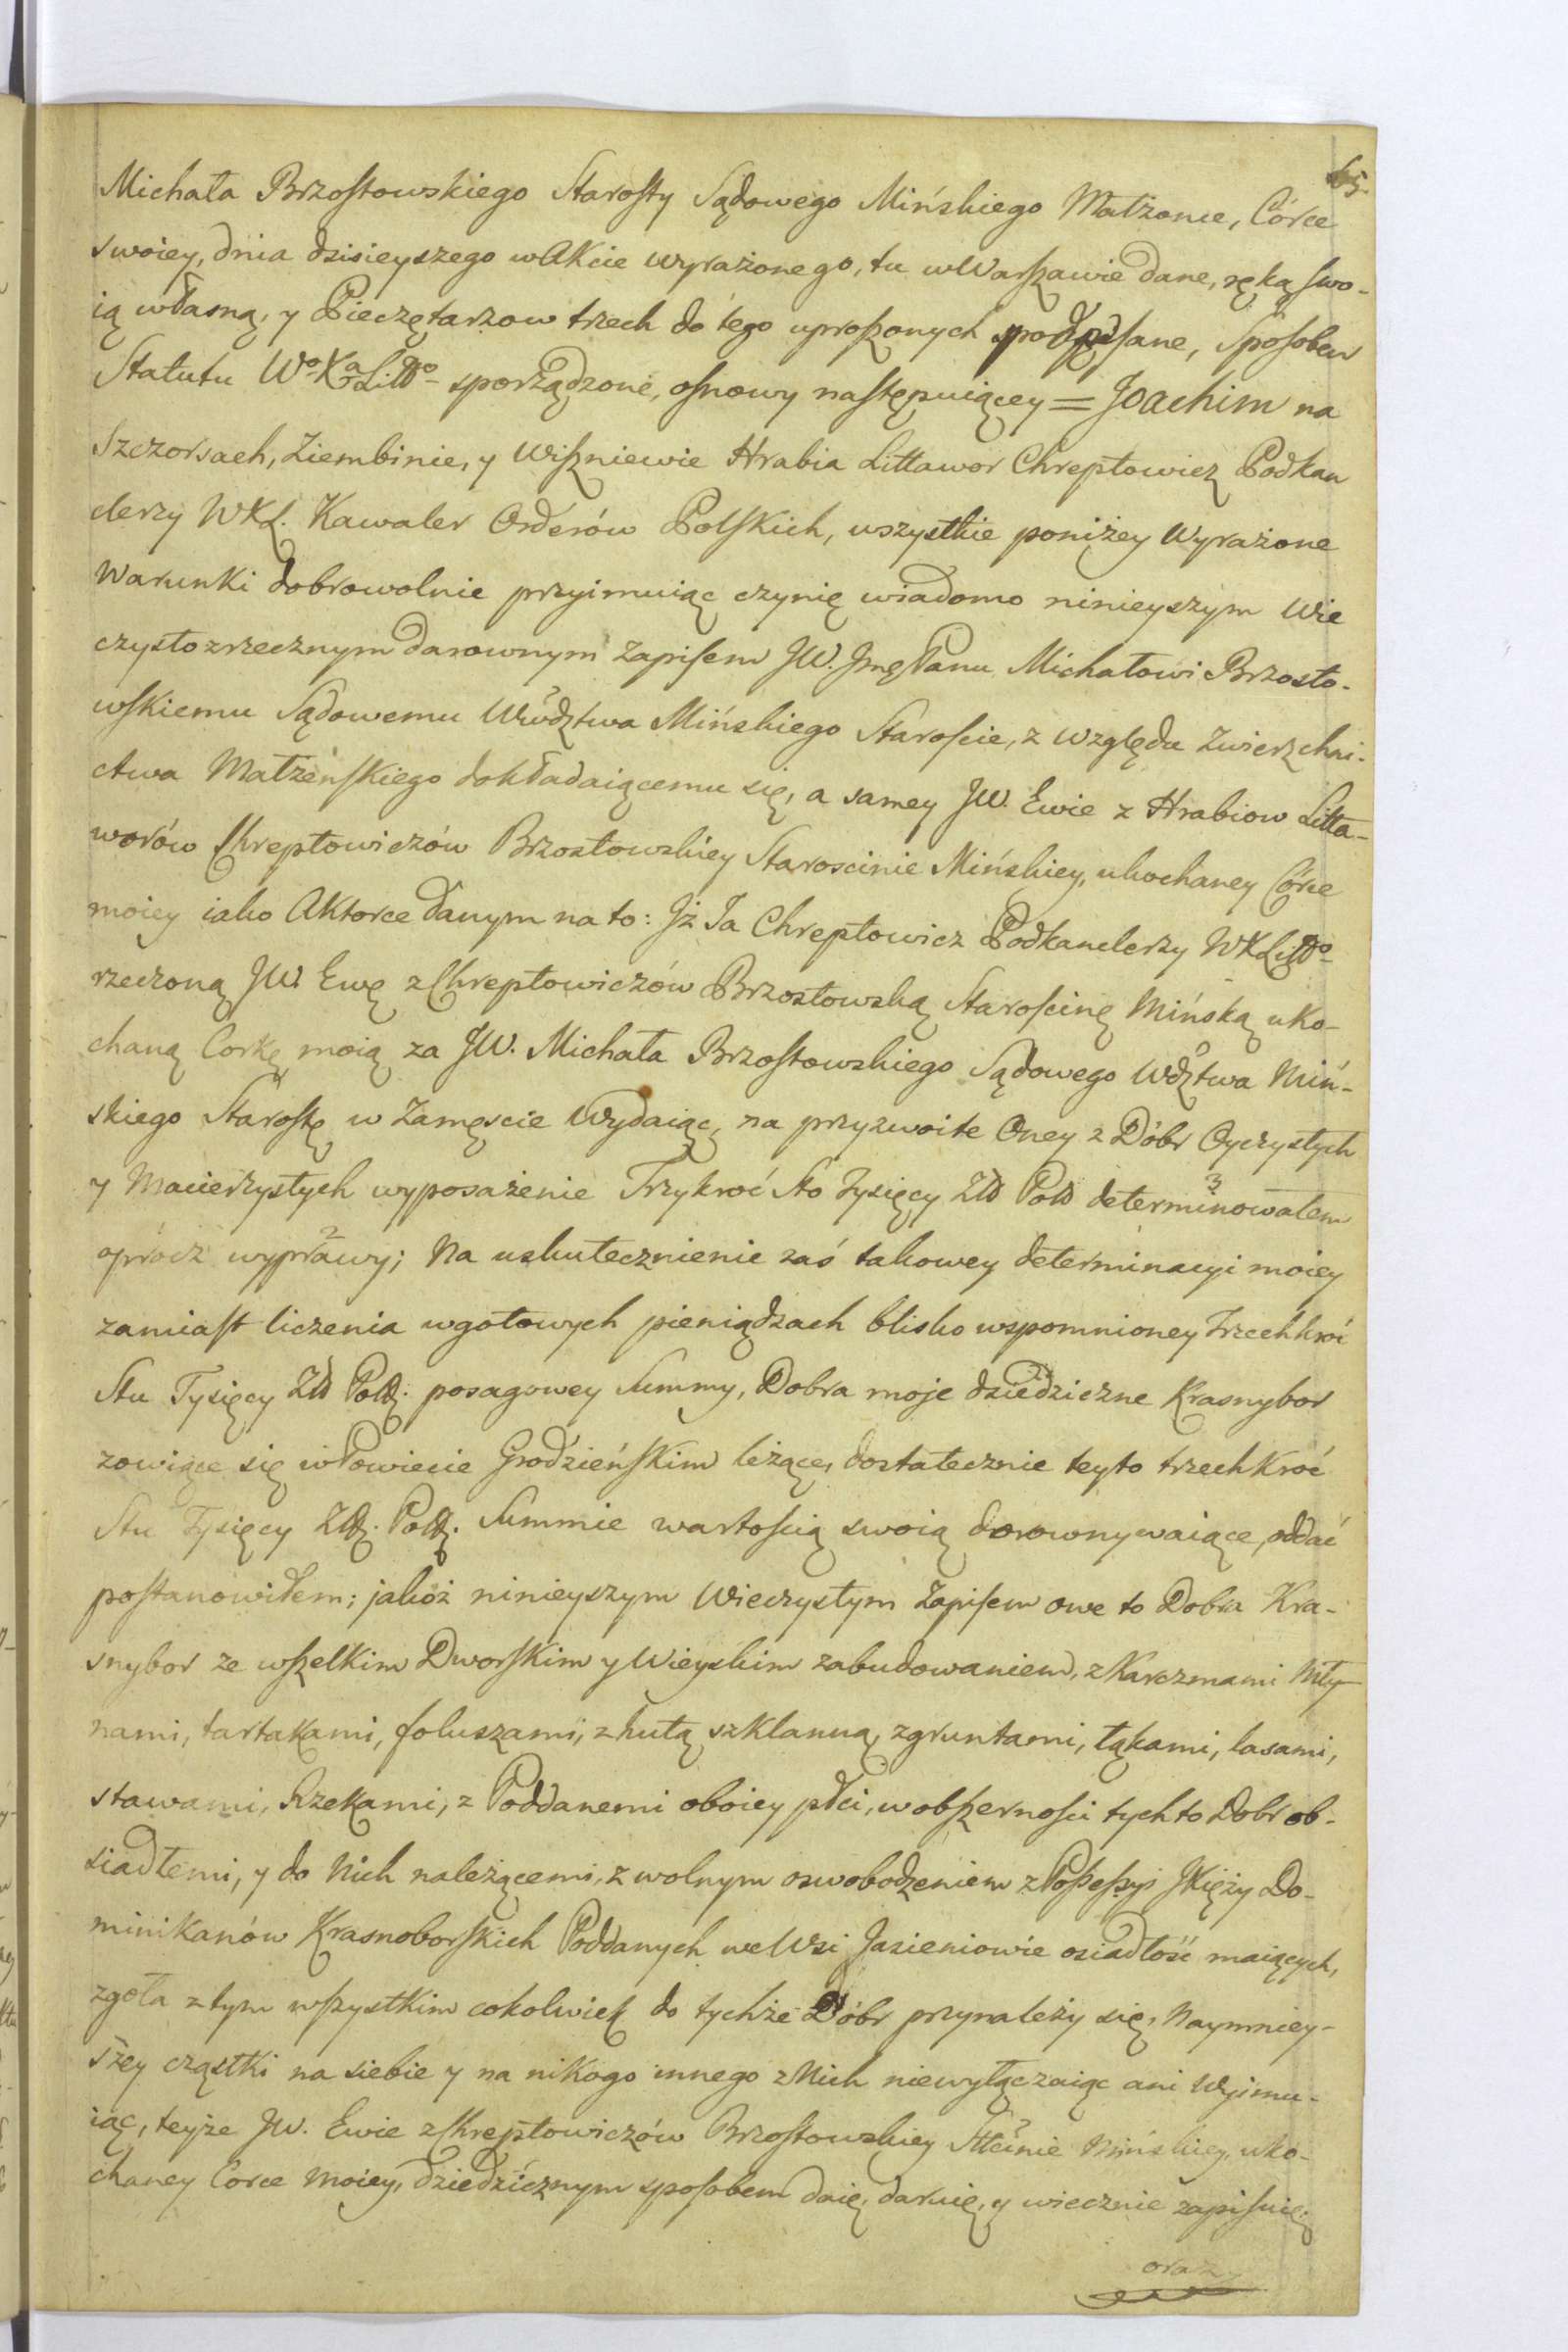 65.
Michała Brzostowskiego Starosty Sądowego Mińskiego Małżonce, Córce
swoiey, dnia dzisieyszego w Akcie wyrażonego, tu w Warszawie dane, ręką swo-
ią własną, y Pieczętarzow trzech do tego uproszonych podpisane, sposobem
Statutu Wo Xa Litto sporządzone, osnowy następuiącey = Joachim na
Szczorsach, Ziembinie, y Wiszniewie Hrabia Littawor Chreptowicz Podkan
clerzy WXL. Kawaler Orderów Polskich, wszystkie poniżey wyrażone
Warunki dobrowolnie przyimuiąc czynię wiadomo ninieyszym Wie
czysto zrzecznym darownym zapisem JW. Jmę Panu Michałowi Brzosto-
wskiemu Sądowemu Wwdztwa Mińskiego Staroście, z względu zwierzchni-
ctwa Małżeńskiego dokładaiącemu się, a samey JW. Ewie z Hrabiow Litta-
worów Chreptowiczów Brzostowskiey Starościnie Mińskiey, ukochaney Córce
moiey iako Aktorce danym na to: Jż Ja Chreptowicz Podkanclerzy WXLitto
rzeczoną JW. Ewę z Chreptowiczów Brzostowską Starościnę Mińską uko-
chaną Corkę moią za JW. Michała Brzostowskiego Sądowego Wdztwa Miń-
skiego Starostę w Zamęscie wydaiąc, na przyzwoite Oney z Dóbr Oyczystych
y Macierzystych wyposażenie Trzykroć Sto Tysięcy Złł Poll determinowałem
oprócz wyprawy; Na uskutecznienie zaś takowey determinacyi moiey
zamiast liczenia w gotowych pieniądzach blisko wspomnioney Trzechkroć
Stu Tysięcy Złł Poll. posagowey Summy, Dobra moje dziedziczne Krasnybor
zowiące się w Powiecie Grodzieńskim leżące, dostatecznie teyto trzechkroć
Stu Tysięcy Złł. Poll. Summie wartością swoią dorownywaiące, oddać
postanowiłem; jakoż ninieyszym Wieczystym Zapisem owe to Dobra Kra-
snybor ze wszelkim Dworskim y Wieyskim zabudowaniem, z Karczmami Mły-
nami, tartakami, foluszami, z hutą szklanną, z gruntami, łąkami, lasami,
stawami, Rzekami, z Poddanemi oboiey płci, w obszerności tych to Dobr ob-
siadłemi, y do Nich należącemi, z wolnym oswobodzeniem z Possessyi JXięży Do-
minikanów Krasnoborskich Poddanych we Wsi Jasieniowie osiadłość maiących,
zgoła z tym wszystkim cokolwiek do tychże Dóbr przynależy się, Naymniey-
szey cząstki na siebie y na nikogo innego z Nich niewyłączaiąc ani wyimu-
iąc, teyże JW. Ewie z Chreptowiczów Brzostowskiey Sttścinie Mińskiey, uko-
chaney Corce moiey, dziedzicznym sposobem daię, daruię, y wiecznie zapisuię;
oraz